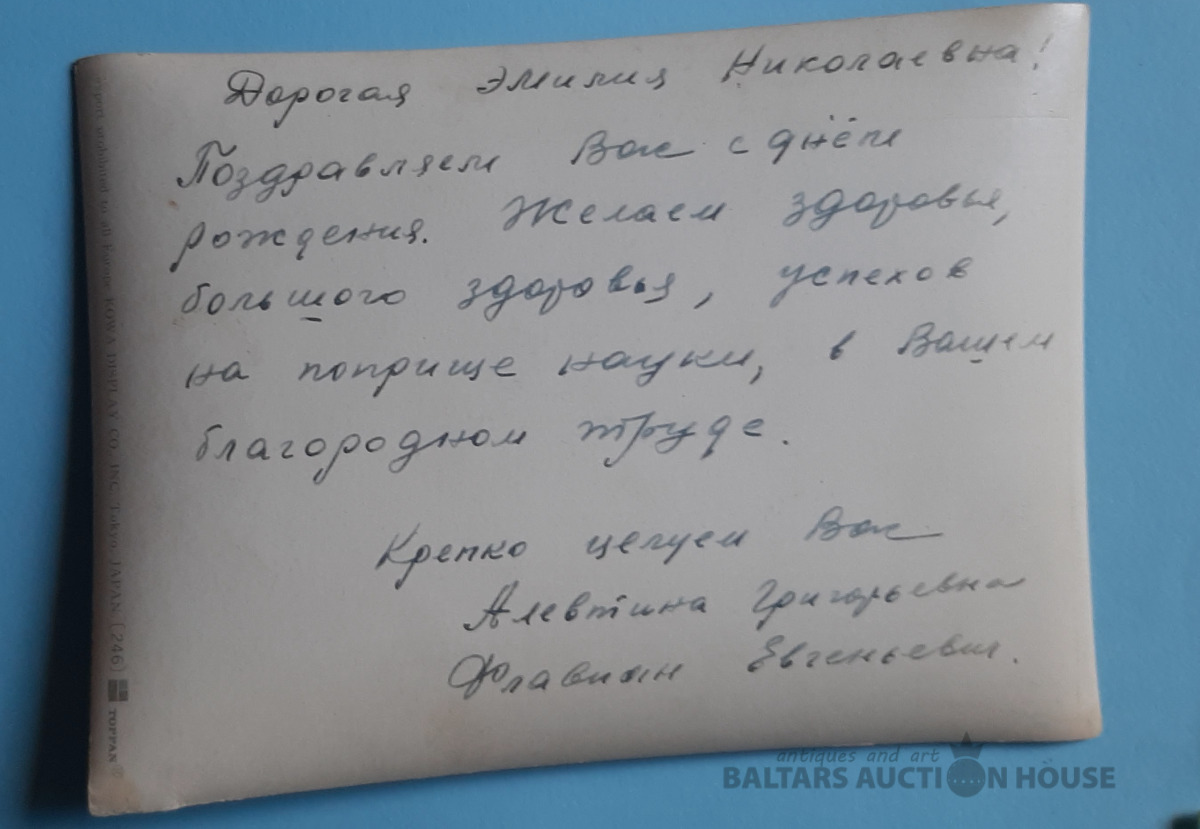 Дорогая Эмилия Николаевна!
Поздравляем Вас с днём
рождения. Желаем здоровья,
большого здоровья, успехов
на поприще науки, в Вашем
благородном труде.
Крепко целуем Вас
Алевтина Григорьевна
Флавиан Евгеньевич.
to all Foreign KOWA DISPLAY CO. INC. Tokyo JAPAN. (246) TOPPAN
antiques and art
BALTARS AUCTION HOUSE